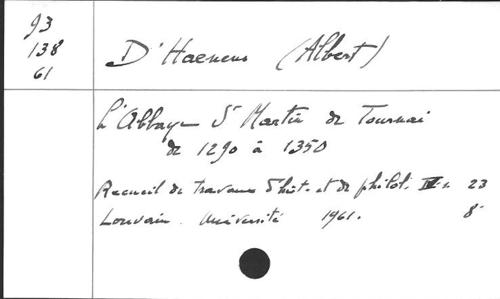 93
138
61
D'Haenens (Albert)
L'Abbaye St Martin de Tournai
de 1290 à 1350
Recueil de travaux d'hist. et de philol. IVe s. 23
Louvain. Université 1961. 8°